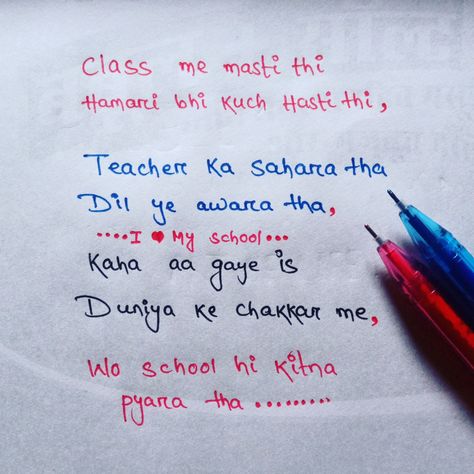 Class me masti thi
Hamari bhi kuch Hasti thi,
Teacher ka sahara tha
Dil ye awara tha,
....I ♥ My school...
Kaha aa gaye is
Duniya ke chakkar me,
Wo school hi kitna
pyara tha .........